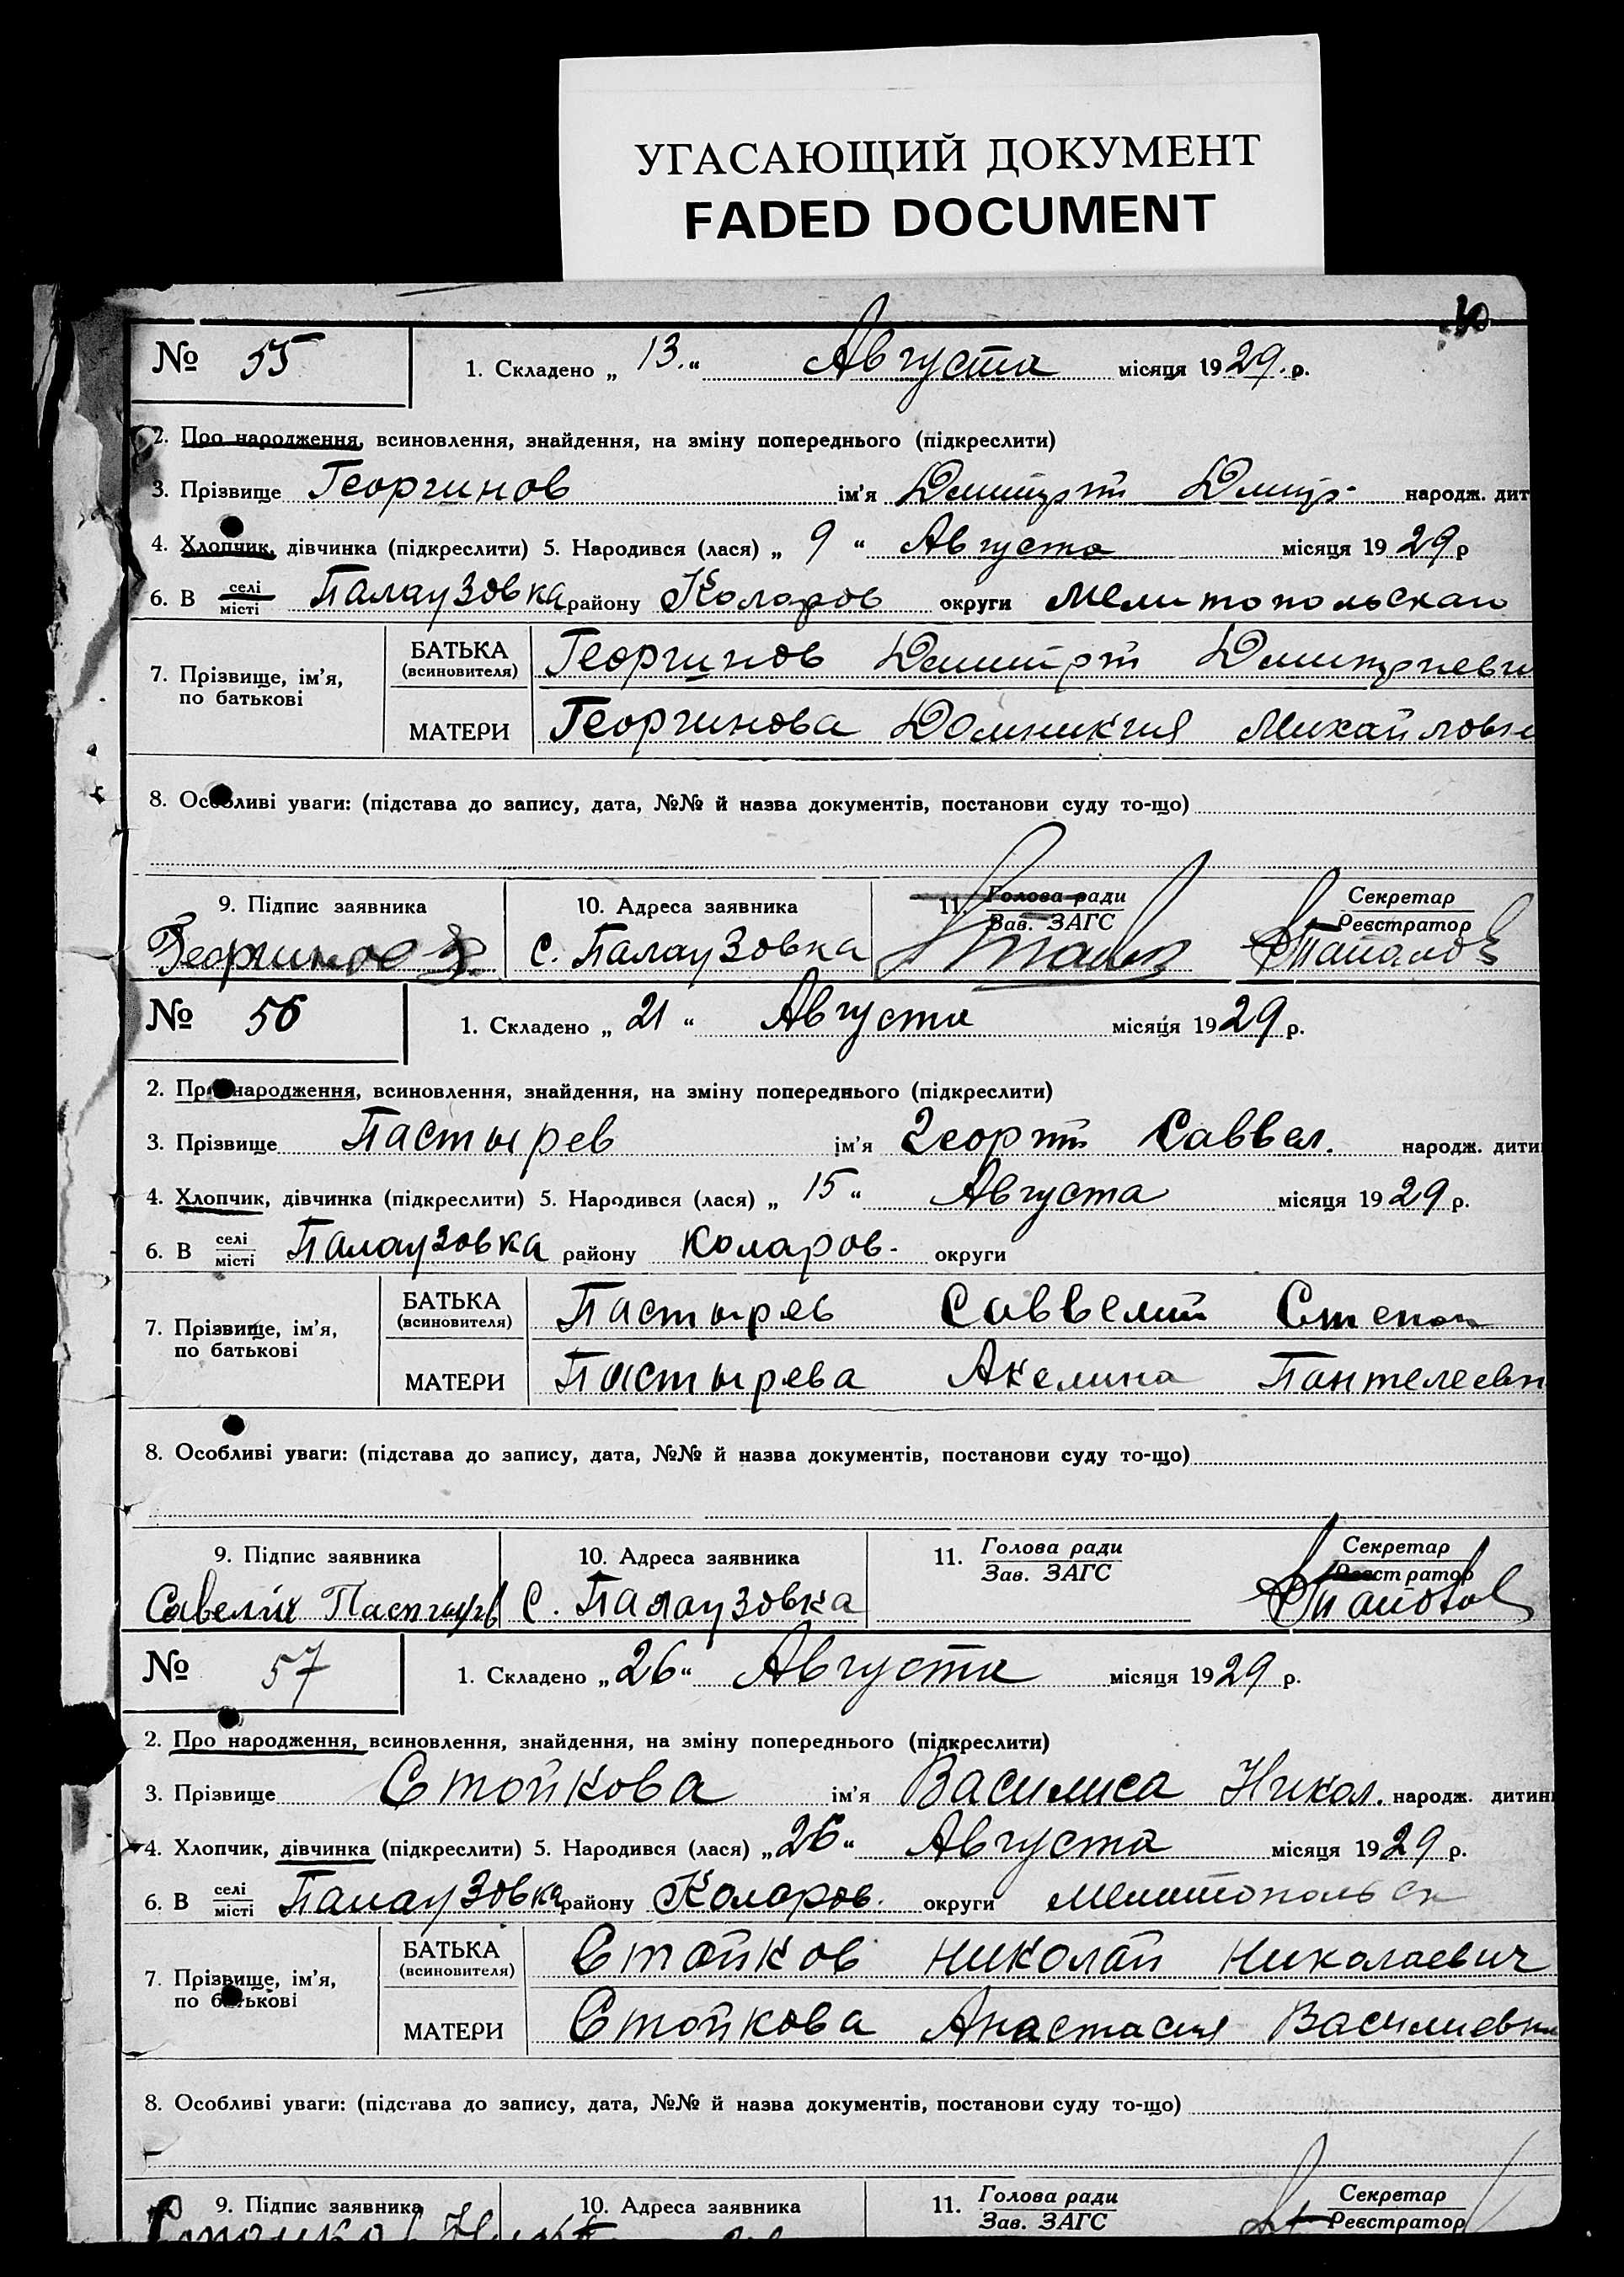 УГАСАЮЩИЙ ДОКУМЕНТ
FADED DOCUMENT
№ 55
1. Складено „ 13. “ Августа місяця 1929. р.
2. Про народження, всиновлення, знайдення, на зміну попереднього (підкреслити)
3. Прізвище Георгинов ім'я Димитрт Дмитр. народж. дит
4. Хлопчик, дівчинка (підкреслити) 5. Народився (лася) „ 9 “ Августа місяця 1929 р
6. В селі місті Палаузовка району Коларов округи Мелитопольскаго
7. Прізвище, ім'я, по батькові
БАТЬКА (всиновителя) Георгинов Димитрт Дмитриеви
МАТЕРИ Георгинова Домникия Михайловн
8. Особливі уваги: (підстава до запису, дата, №№ й назва документів, постанови суду то-що)
9. Підпис заявника 10. Адреса заявника 11. Голова ради Зав. ЗАГС Секретар Реєстратор
Георгинов Д. с. Палаузовка
№ 56
1. Складено „ 21 “ Августа місяця 1929 р.
2. Про народження, всиновлення, знайдення, на зміну попереднього (підкреслити)
3. Прізвище Пастырев ім'я Георгт Саввел. народж. дитин
4. Хлопчик, дівчинка (підкреслити) 5. Народився (лася) „ 15 “ Августа місяця 1929 р.
6. В селі місті Палаузовка району Коларов. округи
7. Прізвище, ім'я, по батькові
БАТЬКА (всиновителя) Пастырев Саввелий Степан
МАТЕРИ Пастырева Акелина Пантелеевн
8. Особливі уваги: (підстава до запису, дата, №№ й назва документів, постанови суду то-що)
9. Підпис заявника 10. Адреса заявника 11. Голова ради Зав. ЗАГС Секретар Реєстратор
Савелий Пастырев с. Палаузовка
№ 57
1. Складено „ 26 “ Августа місяця 1929 р.
2. Про народження, всиновлення, знайдення, на зміну попереднього (підкреслити)
3. Прізвище Стойкова ім'я Василиса Никол. народж. дитин
4. Хлопчик, дівчинка (підкреслити) 5. Народився (лася) „ 26 “ Августа місяця 1929 р.
6. В селі місті Палаузовка району Коларов. округи Мелитопольск
7. Прізвище, ім'я, по батькові
БАТЬКА (всиновителя) Стойков Николай Николаевич
МАТЕРИ Стойкова Анастасия Василиевн
8. Особливі уваги: (підстава до запису, дата, №№ й назва документів, постанови суду то-що)
9. Підпис заявника 10. Адреса заявника 11. Голова ради Зав. ЗАГС Секретар Реєстратор